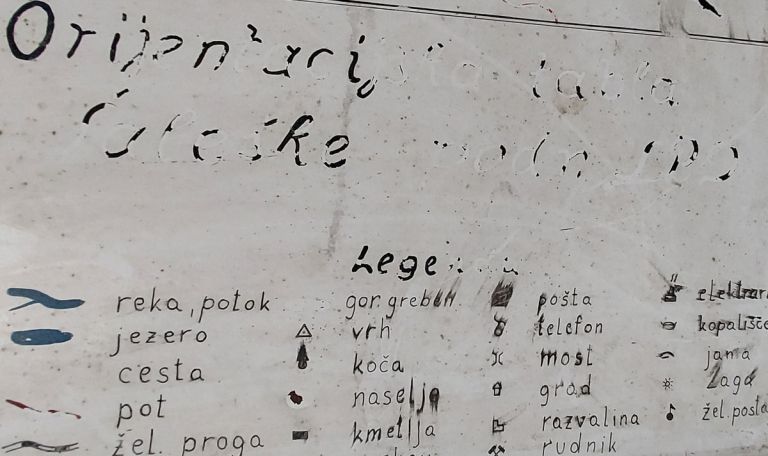 Orijentacijska tabla
Šaleške
Legenda
reka, potok
jezero
cesta
pot
žel. proga
gor. greben
vrh
koča
naselje
kmetija
pošta
telefon
most
grad
razvalina
rudnik
elektrar
kopališče
jama
žaga
žel. posta